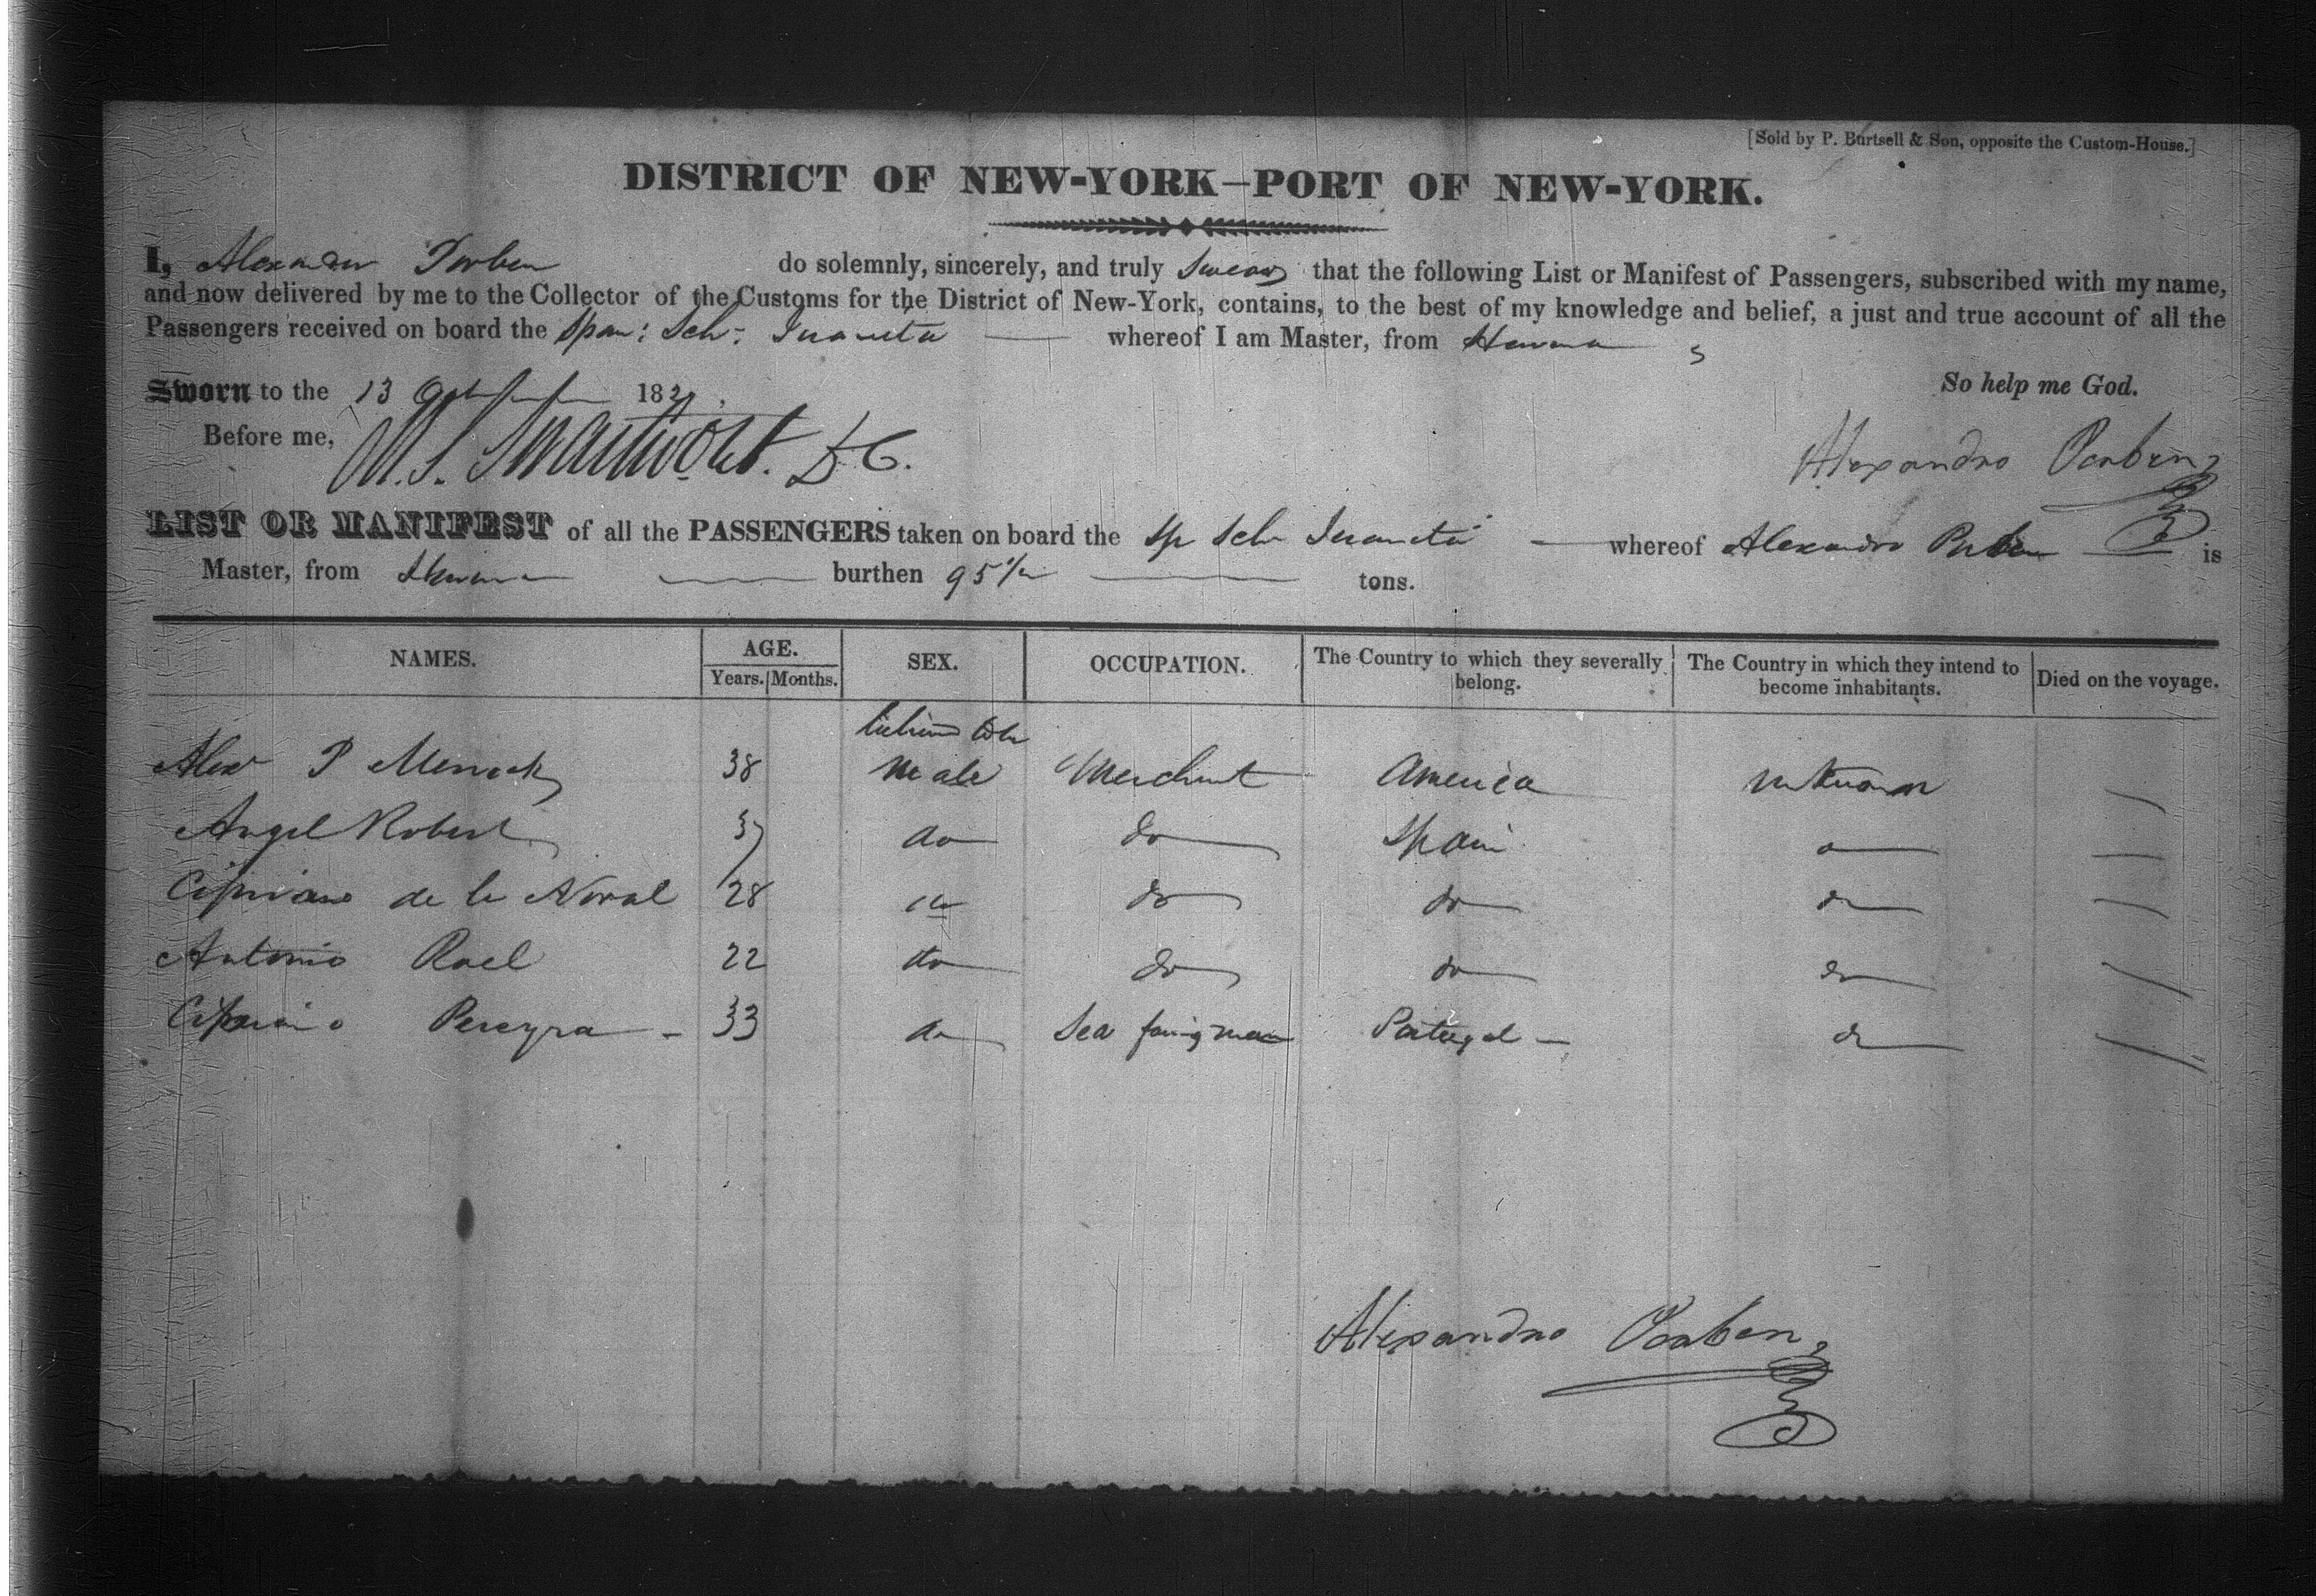 [Sold by P. Burtsell & Son, opposite the Custom-House.]
DISTRICT OF NEW-YORK—PORT OF NEW-YORK.
I, Alexander do solemnly, sincerely, and truly swear that the following List or Manifest of Passengers, subscribed with my name,
and now delivered by me to the Collector of the Customs for the District of New-York, contains, to the best of my knowledge and belief, a just and true account of all the
Passengers received on board the Span: Sch: Juanita whereof I am Master, from Havana
Sworn to the 13 183 So help me God.
Before me, M. S. Swartwout. D C.
Alexandro
LIST OR MANIFEST of all the PASSENGERS taken on board the Sp Sch Juanita whereof Alexandro is
Master, from Havana burthen 95 tons.
NAMES. AGE. SEX. OCCUPATION. The Country to which they severally belong. The Country in which they intend to become inhabitants. Died on the voyage.
Years. Months.
Alexr P 38 Male Merchant America unknown
Angel Robert 37 do do Spain
Cipriano de la Noval 28 do do do do
Antonio Roel 22 do do do do
Cipriano Pereyra 33 do Sea faring man Portugal do
Alexandro